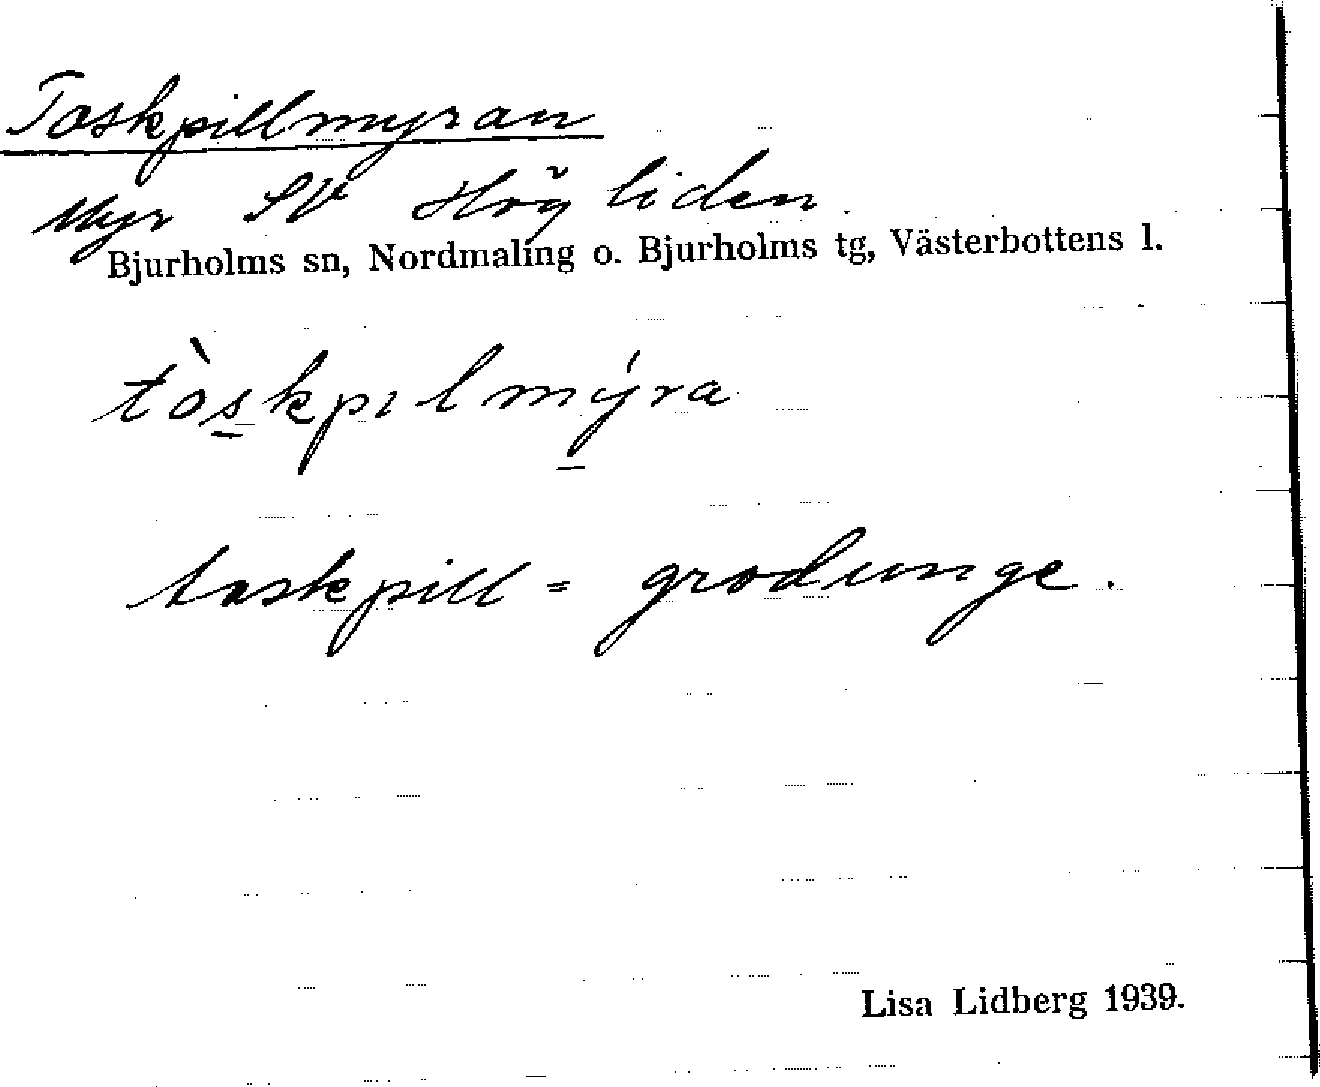 Toskpillmyran
Myr SV Högliden
Bjurholms sn, Nordmaling o. Bjurholms tg, Västerbottens l.
tòskpılmýra
toskpill = grodunge.
Lisa Lidberg 1939.